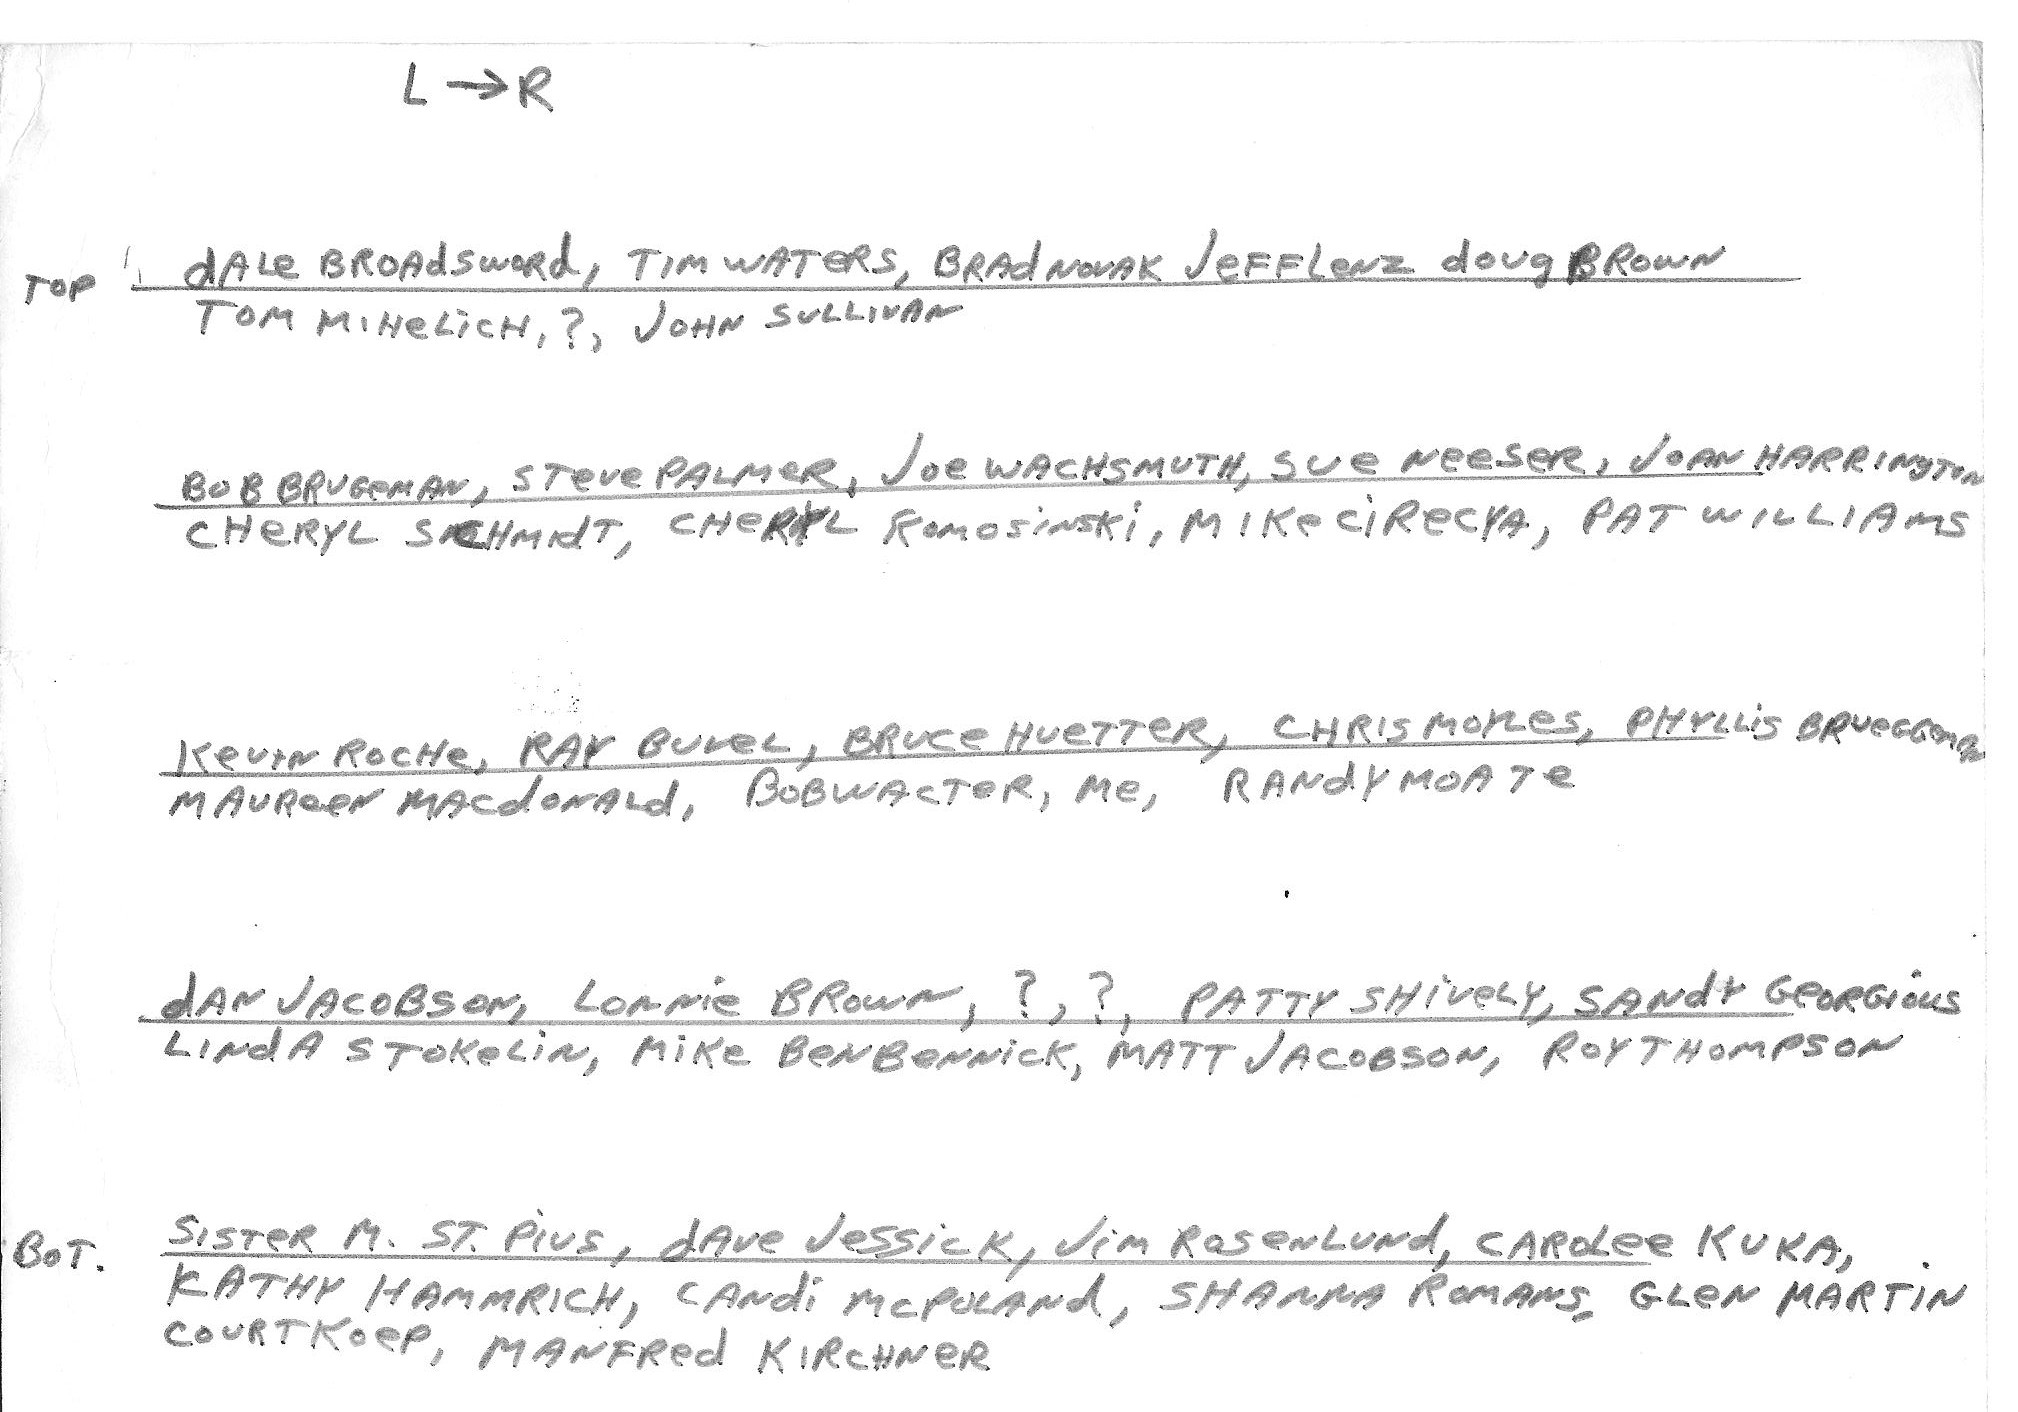 L → R
TOP dALe BROAdSWORd, TIM WATeRS, BRAd NOVAK JeFF LeNZ doug BROWN
TOM MIHeLiCH, ?, JOHN SULLIVAN
BOB BRUGeMAN, STeVe PALMeR, JOe WACHSMUTH, SUe NeeSeR, JOAN HARRINgTON
CHeRYL SCHMIdT, CHeRYL KOMOSiNSKi, MIKe CiReCYA, PAT WILLIAMS
KeVIN ROCHe, RAY BUVeL, BRUCe HUeTTeR, CHRIS MOYLeS, PHYLLiS BRUeGGeMAN
MAUReeN MACdONALd, BOB WACTeR, Me, RANdY MOATe
dAN JACOBSON, LONNie BROWN, ?, ?, PATTY SHiVeLY, SANdY GeORGiOUS
LINdA STOKeLiN, MiKe BeNBeNNiCK, MATT JACOBSON, ROY THOMPSON
BOT. SISTeR M. ST. PiUS, dAVe JeSSiCK, JiM ROSeNLUNd, CAROLee KUKA,
KATHY HAMMRICH, CANdi MCPOLANd, SHANNA ROMANS, GLeN MARTIN
COURT KOeP, MANFRed KIRCHNeR